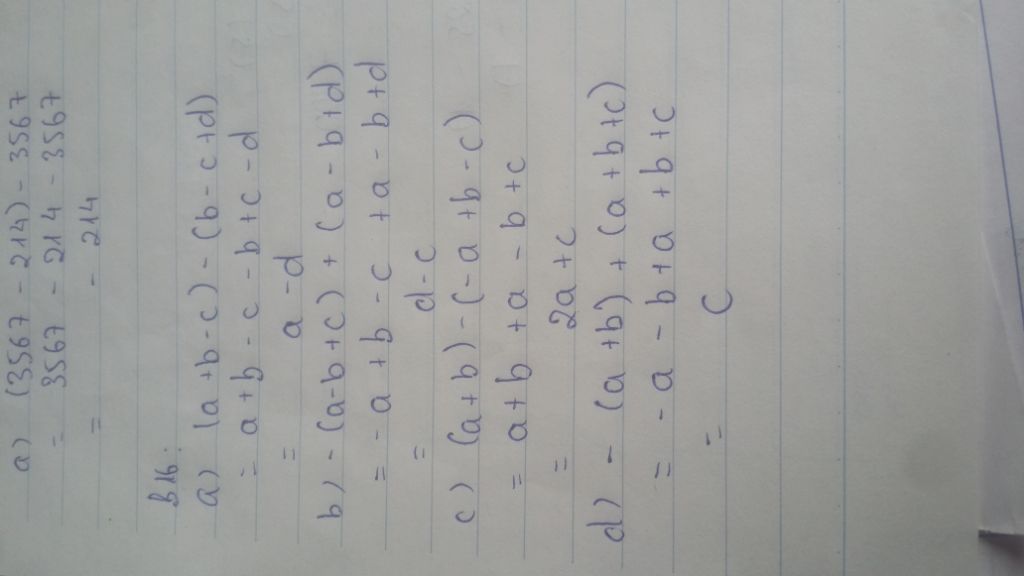 a) (3567 - 214) - 3567
= 3567 - 214 - 3567
= - 214
B16:
a) (a+b-c) - (b-c+d)
= a+b-c-b+c-d
= a-d
b) - (a-b+c) + (a-b+d)
= -a+b-c+a-b+d
= d-c
c) (a+b) - (-a+b-c)
= a+b+a-b+c
= 2a+c
d) - (a+b) + (a+b+c)
= -a-b+a+b+c
= c